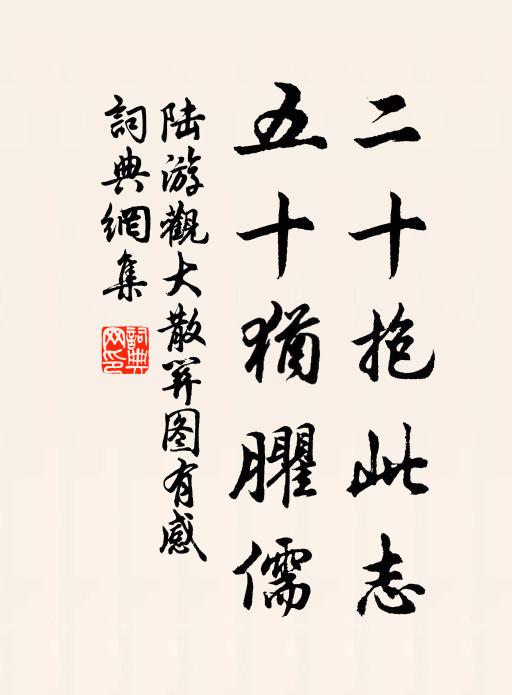 二十抱此志
五十猶臞儒
陆游觀大散关图有感
詞典網集
詞典網印